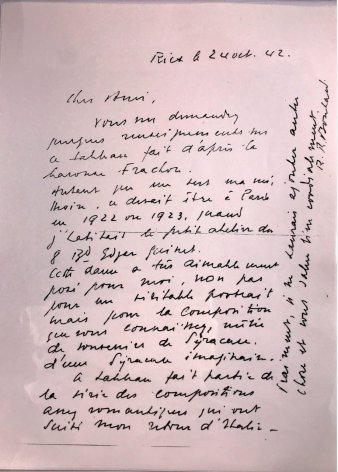 Riex le 24 oct. 42.
Cher Ami,
Vous me demandez
quelques renseignements sur
ce tableau fait d'après la
baronne Frachon.
Autant que me sert ma mé-
moire, ce devait être à Paris
en 1922 ou 1923, quand
j'habitais le petit atelier du
8 Bd Edgar Quinet.
Cette dame a très aimablement
posé pour moi, non pas
pour un véritable portrait
mais pour la composition
que vous connaissez, mêlée
de souvenirs de Syracuse.
d'une Syracuse imaginaire.
Ce tableau fait partie de
la série des compositions
assez romantiques qui ont
suivi mon retour d'Italie –
Vraiment, je ne saurais ajouter autre
chose et vous salue bien cordialement.